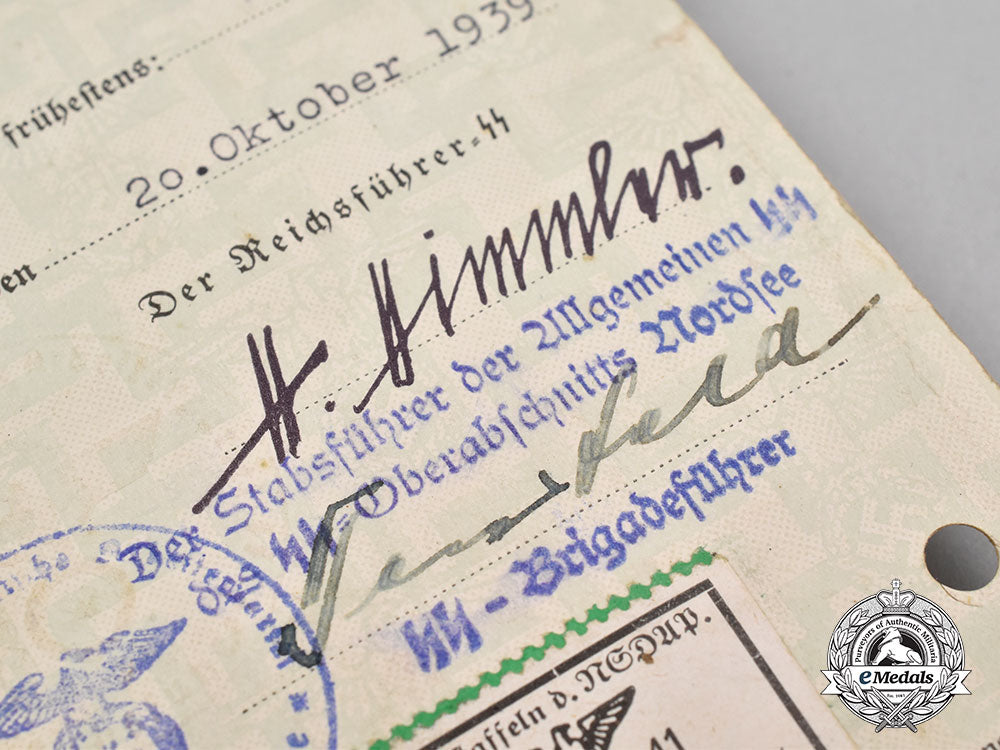 frühestens:
20.Oktober 1939
Der Reichsführer-SS
H. Himmler.
Der Stabsführer der Allgemeinen SS
des SS-Oberabschnitts Nordsee
SS-Brigadeführer
d. NSDAP.
41
Purveyors of Authentic Militaria
eMedals